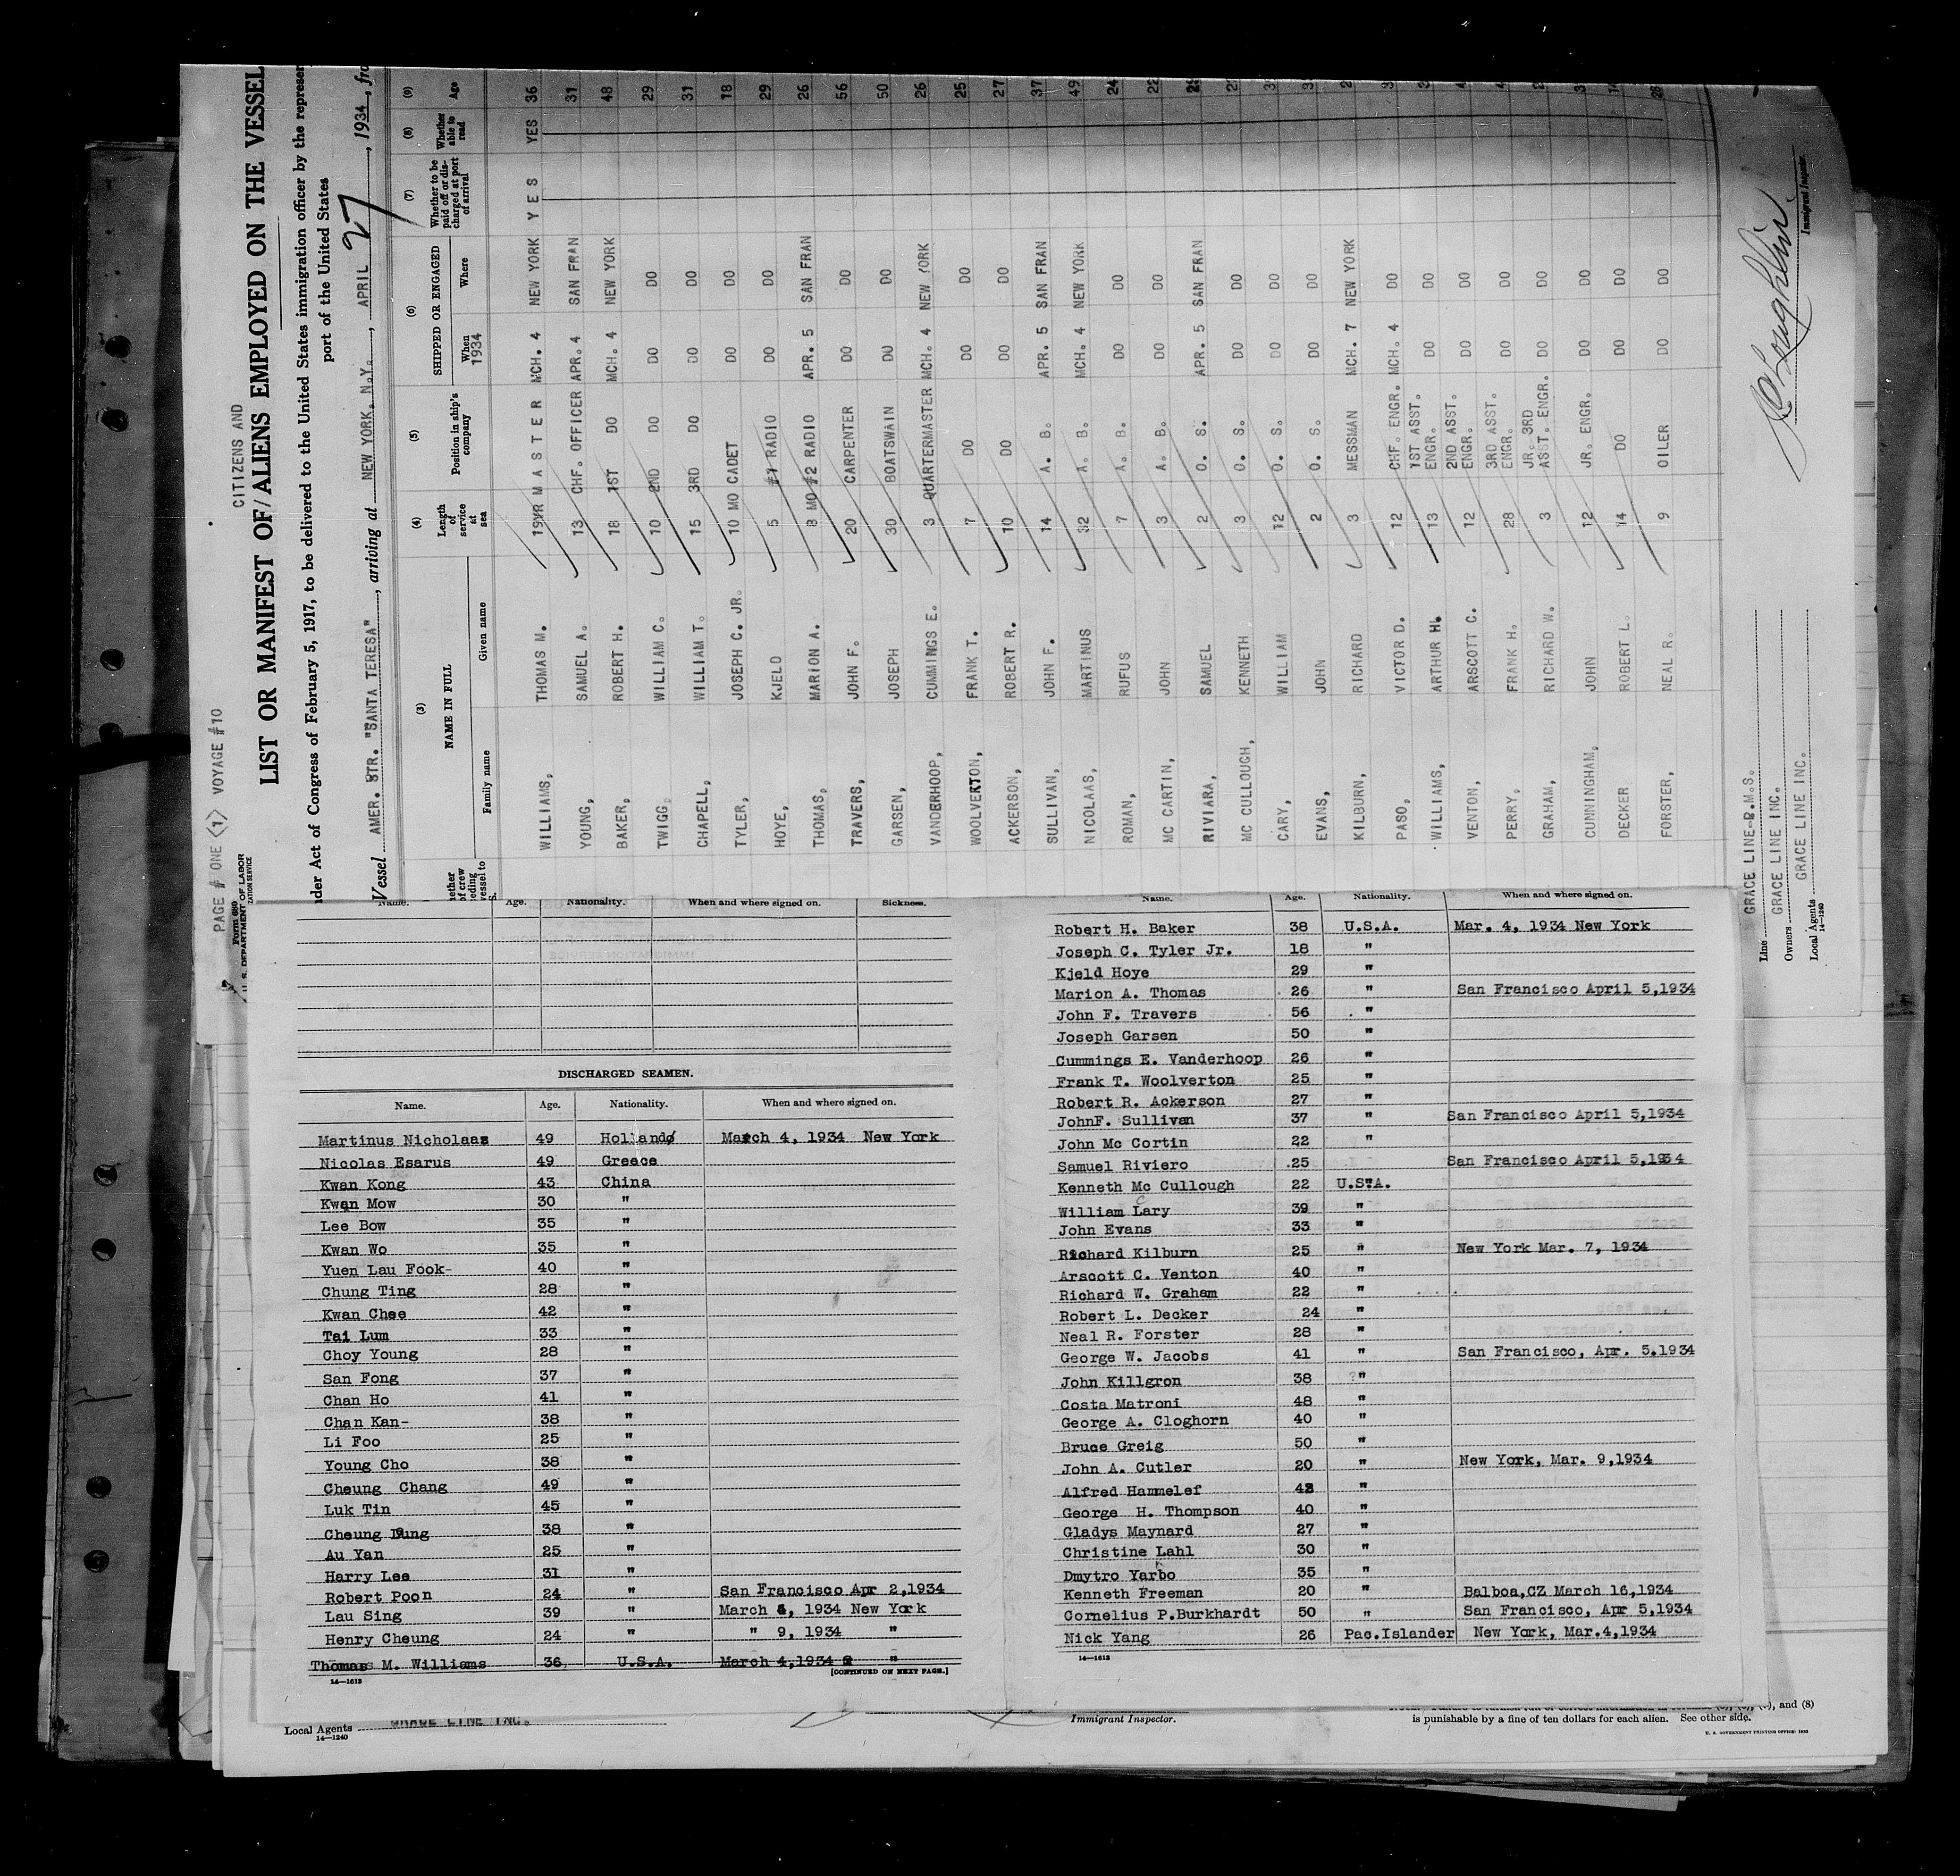 PAGE # ONE (1) VOYAGE #10
Form 680
U. S. DEPARTMENT OF LABOR
CITIZENS AND
LIST OR MANIFEST OF/ALIENS EMPLOYED ON THE VESSEL
nder Act of Congress of February 5, 1917, to be delivered to the United States immigration officer by the represen
port of the United States
Vessel AMER. STR. "SANTA TERESA", arriving at NEW YORK, N.Y., APRIL 27, 1934, fro
(3) (4) (5) (6) (7) (8) (9)
NAME IN FULL
Family name Given name
Length of service at sea
Position in ship's company
SHIPPED OR ENGAGED
When 1934 Where
Whether to be paid off or discharged at port of arrival
Whether able to read
Age
WILLIAMS, THOMAS M. 19YR MASTER MCH. 4 NEW YORK YES YES 36
YOUNG, SAMUEL A. 13 CHF. OFFICER APR. 4 SAN FRAN 31
BAKER, ROBERT H. 18 1ST DO MCH. 4 NEW YORK 48
TWIGG, WILLIAM C. 10 2ND DO DO DO 29
CHAPELL, WILLIAM T. 15 3RD DO DO DO 31
TYLER, JOSEPH C. JR. 10 MO CADET DO DO 18
HOYE, KJELD 5 #1 RADIO DO DO 29
THOMAS, MARION A. 8 MO #2 RADIO APR. 5 SAN FRAN 26
TRAVERS, JOHN F. 20 CARPENTER DO DO 56
GARSEN, JOSEPH 30 BOATSWAIN DO DO 50
VANDERHOOP, CUMMINGS E. 3 QUARTERMASTER MCH. 4 NEW YORK 26
WOOLVERTON, FRANK T. 7 DO DO DO 25
ACKERSON, ROBERT R. 10 DO DO DO 27
SULLIVAN, JOHN F. 14 A. B. APR. 5 SAN FRAN 37
NICOLAAS, MARTINUS 32 A. B. MCH. 4 NEW YORK 49
ROMAN, RUFUS 7 A. B. DO DO 24
MC CARTIN, JOHN 3 A. B. DO DO 22
RIVIARA, SAMUEL 2 O. S. APR. 5 SAN FRAN
MC CULLOUGH, KENNETH 3 O. S. DO DO
CARY, WILLIAM 12 O. S. DO DO
EVANS, JOHN 2 O. S. DO DO
KILBURN, RICHARD 3 MESSMAN MCH. 7 NEW YORK
PASO, VICTOR D. 12 CHF. ENGR. MCH. 4 DO
WILLIAMS, ARTHUR H. 13 1ST ASST. ENGR. DO DO
VENTON, ARSCOTT C. 12 2ND ASST. ENGR. DO DO
PERRY, FRANK H. 28 3RD ASST. ENGR. DO DO
GRAHAM, RICHARD W. 3 JR. 3RD ASST. ENGR. DO DO
CUNNINGHAM, JOHN 12 JR. ENGR. DO DO
DECKER ROBERT L. 14 DO DO DO
FORSTER, NEAL R. 9 OILER DO DO
Line GRACE LINE-P.M.S.
Owners GRACE LINE INC.
Local Agents GRACE LINE INC.
14—1240
Immigrant Inspector.
Name. Age. Nationality. When and where signed on. Sickness.
DISCHARGED SEAMEN.
Name. Age. Nationality. When and where signed on.
Martinus Nicholaas 49 Holland March 4, 1934 New York
Nicolas Esarus 49 Greece
Kwan Kong 43 China
Kwan Mow 30 "
Lee Bow 35 "
Kwan Wo 35 "
Yuen Lau Fook- 40 "
Chung Ting 28 "
Kwan Chee 42 "
Tai Lum 33 "
Choy Young 28 "
San Fong 37 "
Chan Ho 41 "
Chan Kan- 38 "
Li Foo 25 "
Young Cho 38 "
Cheung Chang 49 "
Luk Tin 45 "
Cheung 38 "
Au Yan 25 "
Harry Lee 31 "
Robert Poon 24 " San Francisco Apr 2,1934
Lau Sing 39 " March 4, 1934 New York
Henry Cheung 24 " " 9, 1934 "
Thomas M. Williams 36 U.S.A. March 4,1934 "
14—1612 [CONTINUED ON NEXT PAGE.]
Name. Age. Nationality. When and where signed on.
Robert H. Baker 38 U.S.A. Mar. 4, 1934 New York
Joseph C. Tyler Jr. 18 "
Kjeld Hoye 29 "
Marion A. Thomas 26 " San Francisco April 5,1934
John F. Travers 56 "
Joseph Garsen 50 "
Cummings E. Vanderhoop 26 "
Frank T. Woolverton 25 "
Robert R. Ackerson 27 "
JohnF. Sullivan 37 " San Francisco April 5,1934
John Mc Cortin 22 "
Samuel Riviero 25 San Francisco April 5,1934
Kenneth Mc Cullough 22 U.S.A.
William Cary 39 "
John Evans 33 "
Richard Kilburn 25 " New York Mar. 7, 1934
Arscott C. Venton 40 "
Richard W. Graham 22 "
Robert L. Decker 24 "
Neal R. Forster 28 "
George W. Jacobs 41 " San Francisco, Apr. 5.1934
John Killgron 38 "
Costa Matroni 48 "
George A. Cloghorn 40 "
Bruce Greig 50 "
John A. Cutler 20 " New York, Mar. 9,1934
Alfred Hammelef 42 "
George H. Thompson 40 "
Gladys Maynard 27 "
Christine Lahl 30 "
Dmytro Yarho 35 "
Kenneth Freeman 20 " Balboa,CZ March 16,1934
Cornelius P.Burkhardt 50 " San Francisco, Apr 5,1934
Nick Yang 26 Pac.Islander New York, Mar.4,1934
14—1612
Local Agents GRACE LINE INC.
14—1240
Immigrant Inspector.
and (8)
is punishable by a fine of ten dollars for each alien. See other side.
U. S. GOVERNMENT PRINTING OFFICE